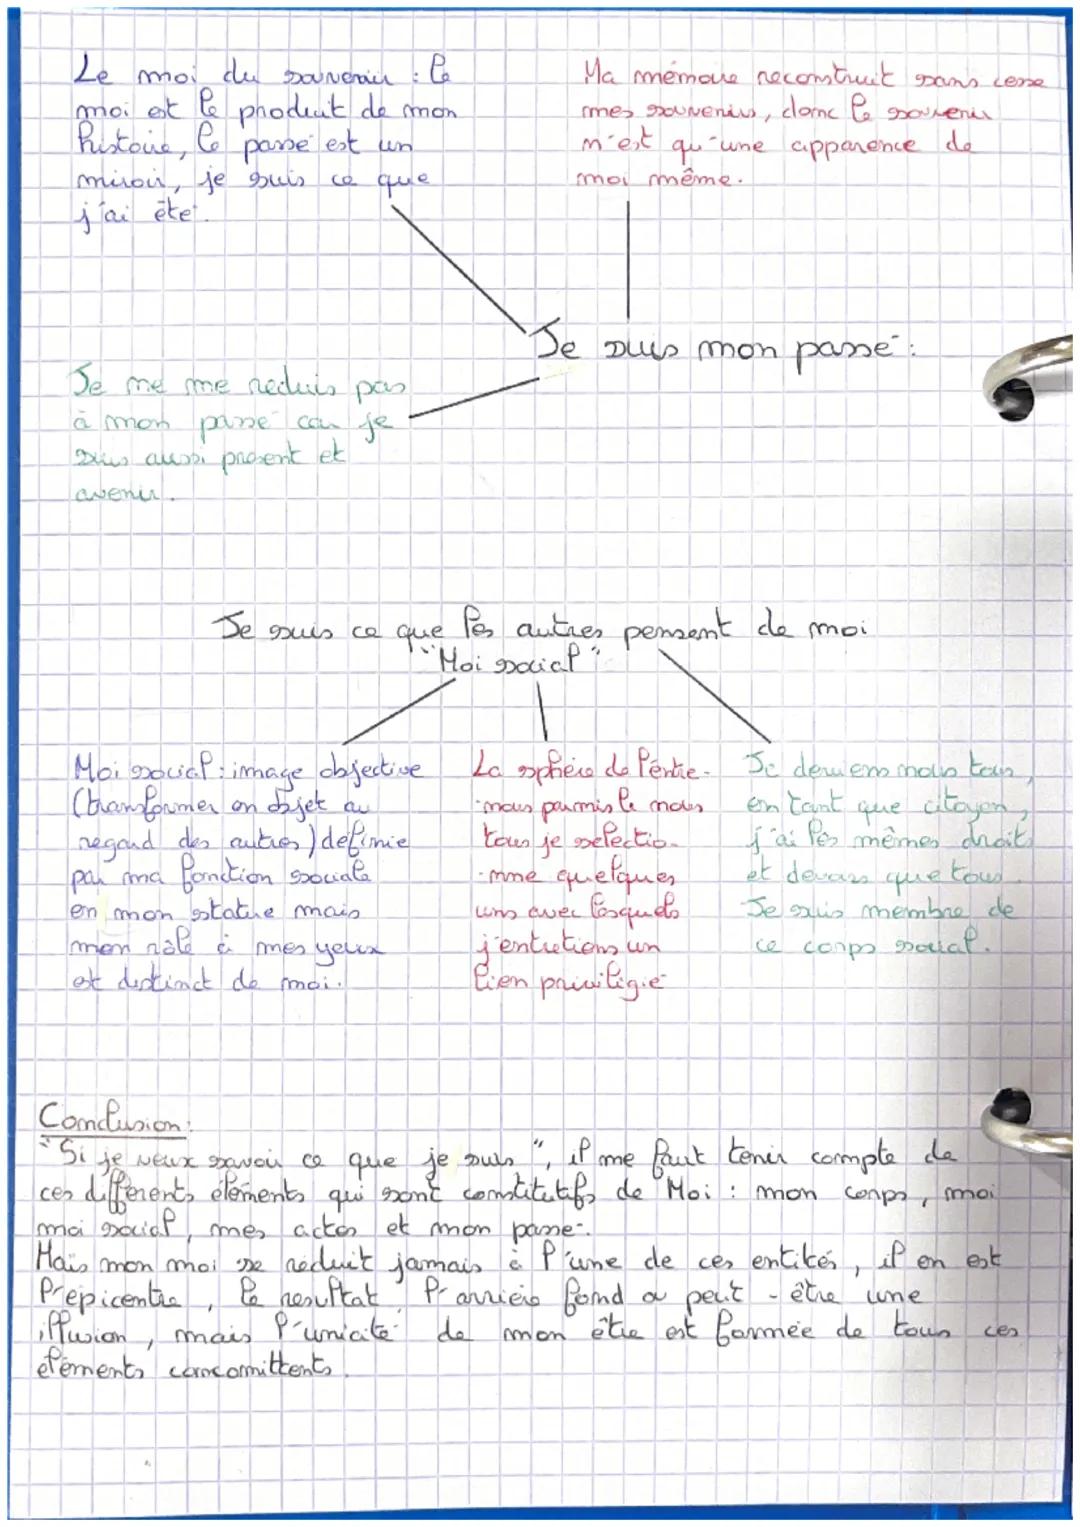 Le moi du souvenir : le
moi est le produit de mon
histoire, le passé est un
miroir, je suis ce que
j'ai été.
Ma mémoire reconstruit sans cesse
mes souvenirs, donc le souvenir
n'est qu'une apparence de
moi même.
Je suis mon passé :
Je ne me réduis pas
à mon passé car je
suis aussi présent et
avenir.
Je suis ce que les autres pensent de moi
"Moi social"
Moi social : image objective
(transformer en objet au
regard des autres) définie
par ma fonction sociale
en mon statue mais
mon rôle à mes yeux
est distinct de moi.
La sphère de l'entre-
-nous parmis le nous
tous je sélectio-
-nne quelques
uns avec lesquels
j'entretions un
lien privilégié
Je deviens nous tous,
en tant que citoyen,
j'ai les mêmes droits
et devoirs que tous.
Je suis membre de
ce corps social.
Conclusion :
"Si je veux savoir ce que je suis", il me faut tenir compte de
ces différents éléments qui sont constitutifs de Moi : mon corps, moi
moi social, mes actes et mon passé.
Mais mon moi se réduit jamais à l'une de ces entités, il en est
l'épicentre, le résultat l'arrière fond a peut-être une
illusion, mais l'unicité de mon être est formée de tous ces
éléments concomittents.